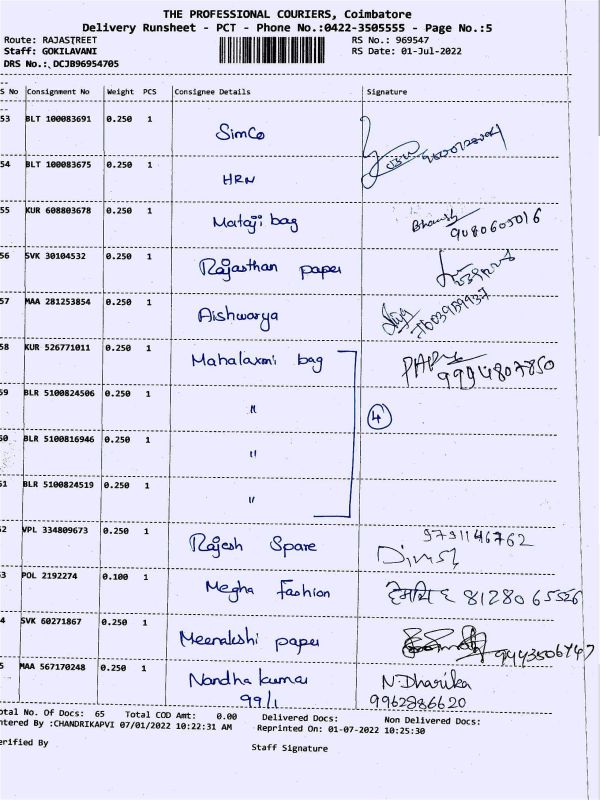 THE PROFESSIONAL COURIERS, Coimbatore
Delivery Runsheet - PCT - Phone No.:0422-3505555 - Page No.:5
Route: RAJASTREET RS No.: 969547
Staff: GOKILAVANI RS Date: 01-Jul-2022
DRS No.: DCJB96954705
S No Consignment No Weight PCS Consignee Details Signature
53 BLT 100083691 0.250 1 SimCo
54 BLT 100083675 0.250 1 HRN
55 KUR 608803678 0.250 1 Mataji bag 9080605016
56 SVK 30104532 0.250 1 Rajasthan paper
57 MAA 281253854 0.250 1 Aishwarya
58 KUR 526771011 0.250 1 Mahalaxmi bag 9994807850
59 BLR 5100824506 0.250 1 " 4
60 BLR 5100816946 0.250 1 "
51 BLR 5100824519 0.250 1 "
52 VPL 334809673 0.250 1 Rajesh Spare 9791146762
53 POL 2192274 0.100 1 Megha fashion 8128065526
4 SVK 60271867 0.250 1 Meenakshi paper 9443506747
5 MAA 567170248 0.250 1 Nandha kumar N. Dharika
99/1 9962886620
otal No. Of Docs: 65 Total COD Amt: 0.00 Delivered Docs: Non Delivered Docs:
ntered By :CHANDRIKAPVI 07/01/2022 10:22:31 AM Reprinted On: 01-07-2022 10:25:30
erified By Staff Signature